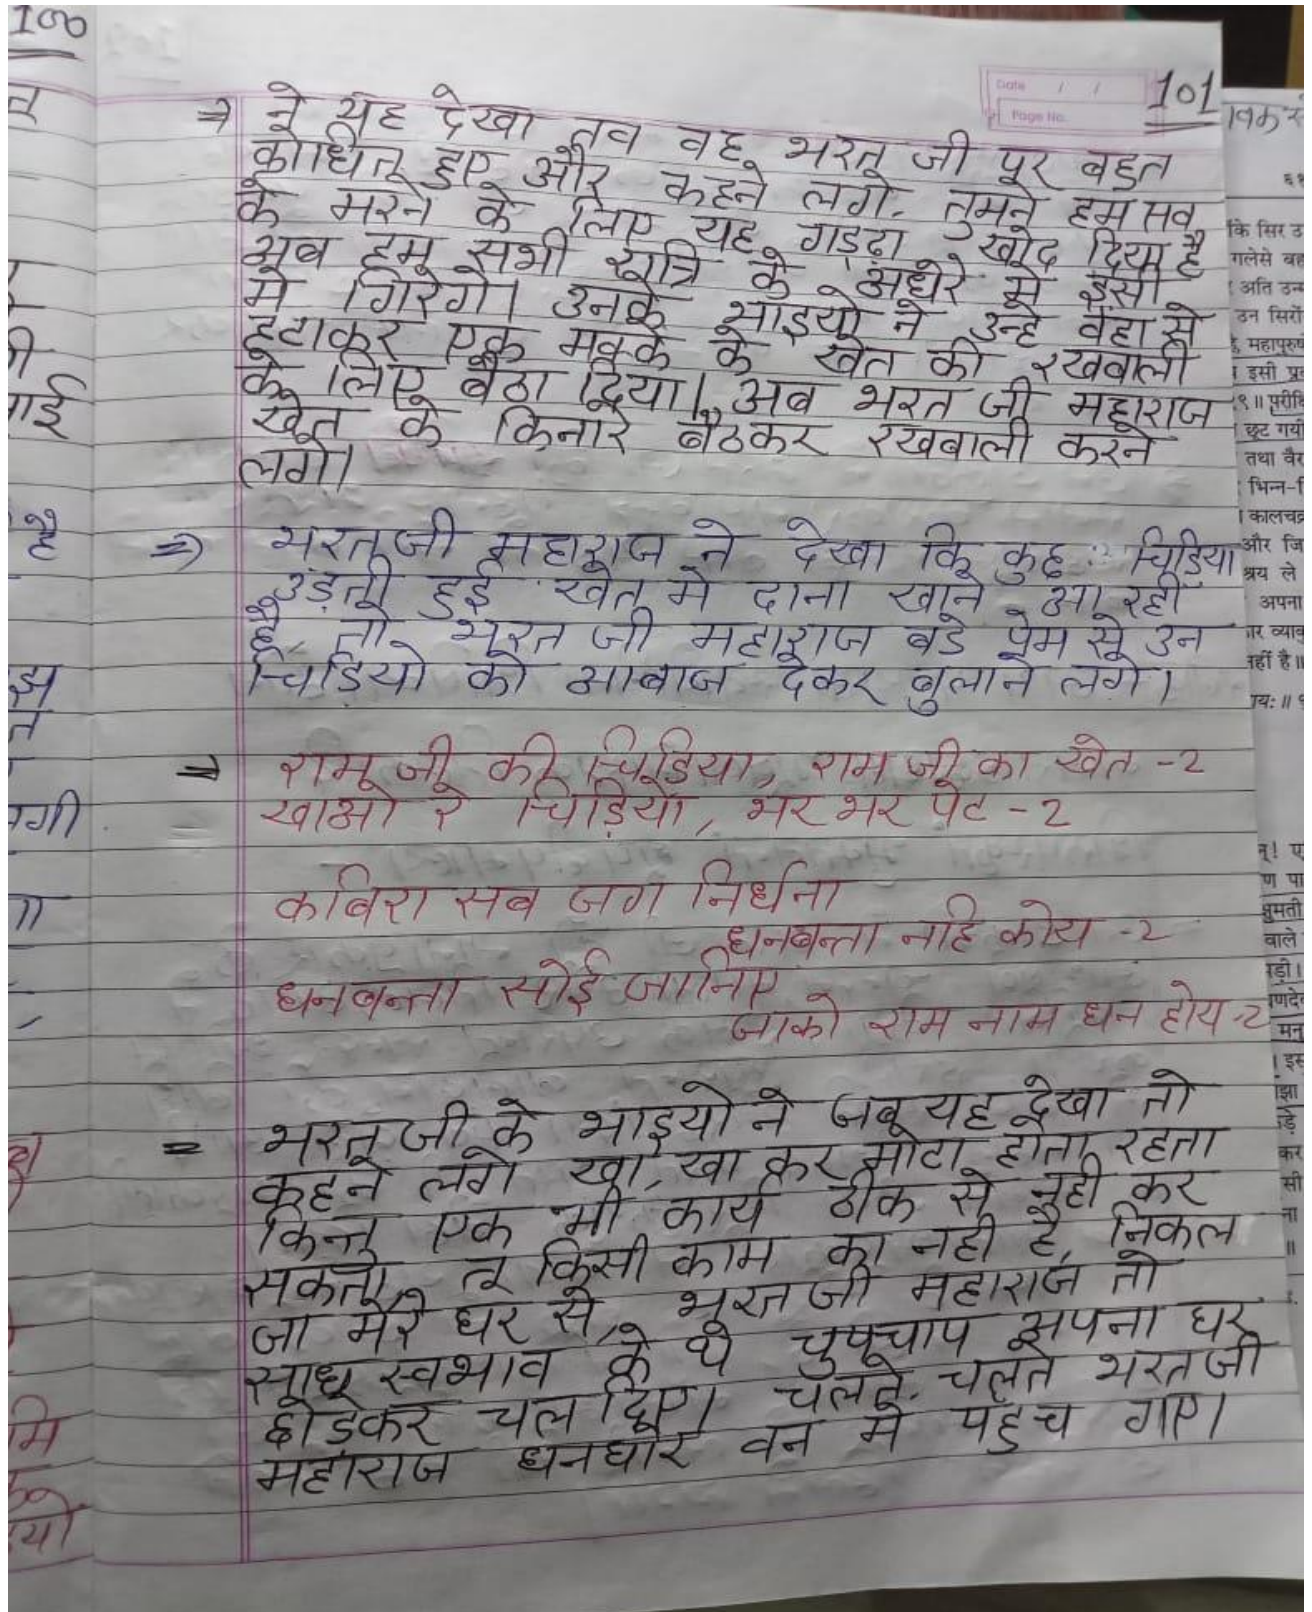 100
Date / /
Page No.
101
⇒ ने यह देखा तव वह भरत जी पर बहुत
क्रोधित हुए और कहने लगे. तुमने हम सव
के मरने के लिए यह गड्ढा खोद दिया है
अब हम सभी रात्रि के अंधेरे मे इसी
मे गिरेगे। उनके भाइयो ने उन्हे वहा से
हटाकर एक मक्के के खेत की रखवाली
के लिए बैठा दिया। अब भरत जी महाराज
खेत के किनारे बैठकर रखवाली करने
लगे।
⇒ भरत जी महाराज ने देखा कि कुछ चिड़िया
उड़ती हुई खेत मे दाना खाने आ रही
है, तो भरत जी महाराज बडे प्रेम से उन
चिड़ियो को आबाज देकर बुलाने लगे।
⇒ राम जी की चिड़िया, राम जी का खेत -2
खाओ रे चिड़ियों, भर भर पेट -2
कबिरा सब जग निर्धना
धनबन्ता नहि कोय -2
धनबन्ता सोई जानिए
जाको राम नाम धन होय -2
= भरत जी के भाइयो ने जब यह देखा तो
कहने लगे खा, खा कर मोटा होता रहता
किन्तु एक भी कार्य ठीक से नही कर
सकता, तू किसी काम का नही है, निकल
जा मेरे घर से, भरत जी महाराज तो
साधु स्वभाव के थे चुपचाप अपना घर
छोड़कर चल दिए। चलते. चलते भरत जी
महाराज घनघोर वन मे पहुच गए।